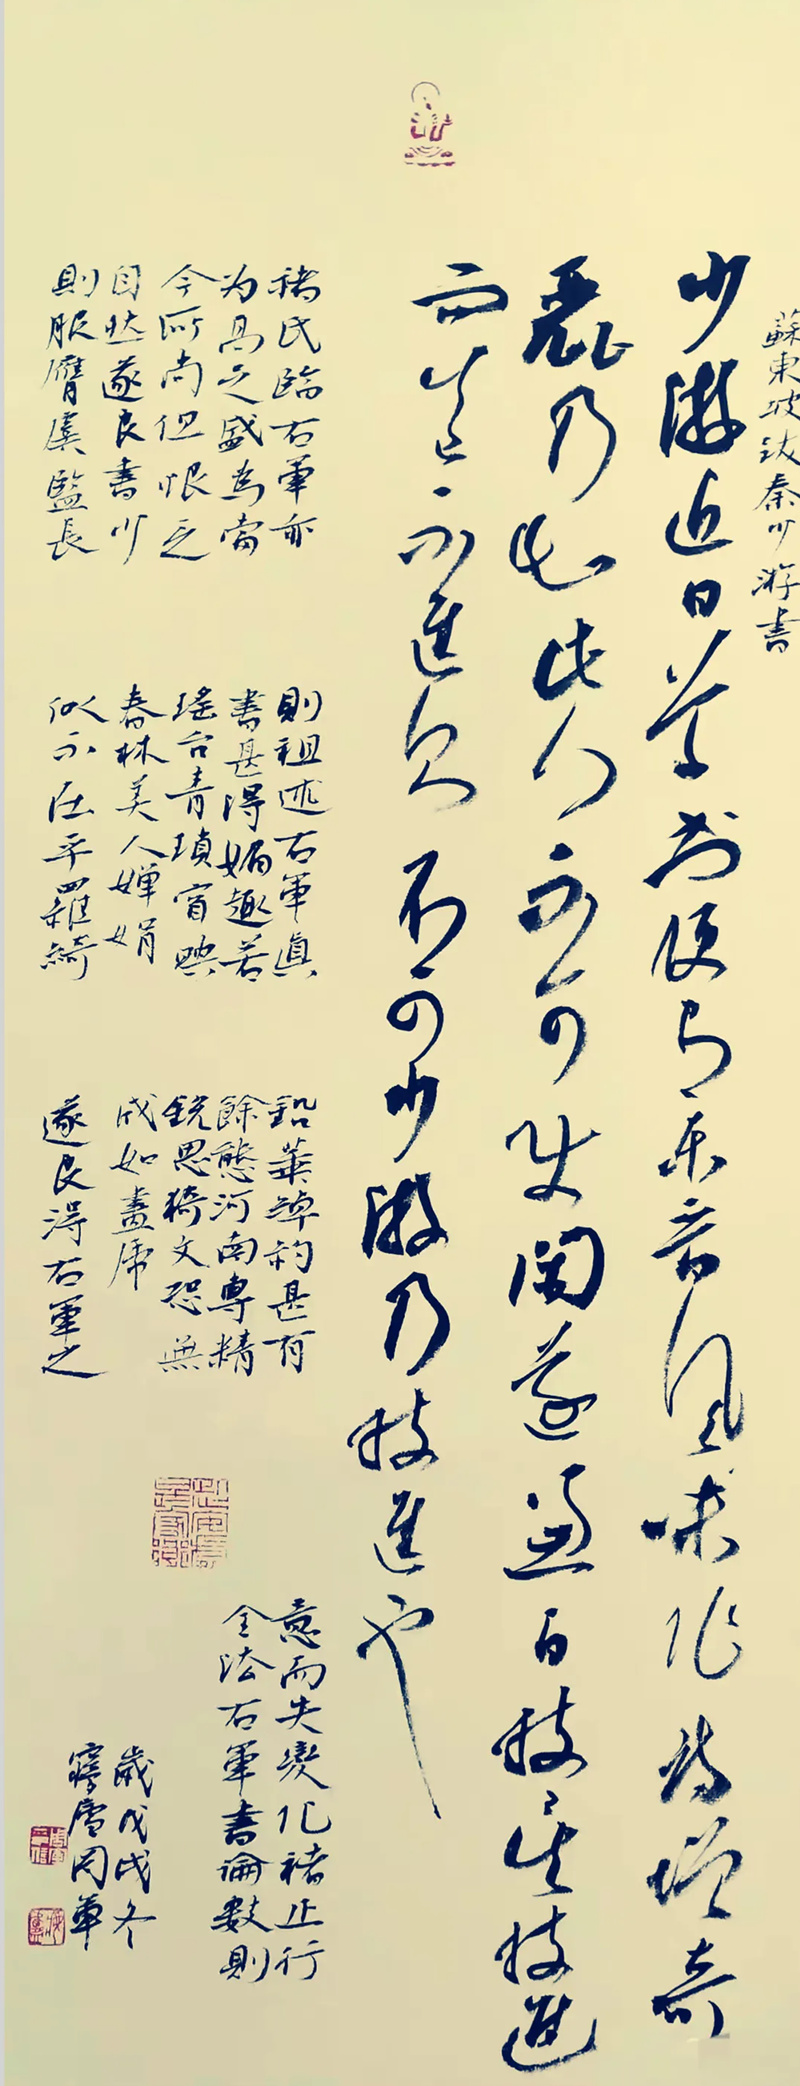 蘇東坡跋秦少游書
少游近日草書便有東晉風味作詩增奇
麗乃知此人不可使閑遂兼百技矣技進
而道不進則不可少游乃技進也
褚氏臨右軍亦
为高之盛為當
今所尚但恨乏
自然遂良書少
則服膺虞監長
則祖述右軍真
書甚得媚趣若
瑤台青瑣窅映
春林美人嬋娟
似不任乎羅綺
鉛華綽約甚有
餘態河南專精
銳思猗文恐無
成如畫虎
遂良得右軍之
意而失變化褚止行
全法右軍書論數則
歲戊戌冬
廬周軍